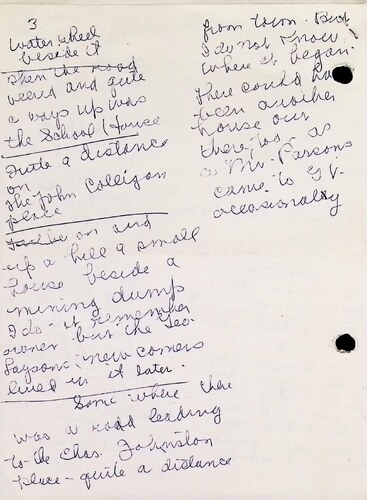 3
Water wheel
beside it
Then the road
veered and quite
a ways up was
the School House
Quite a distance
on
The John Colligan
place
on and
up a hill a small
house beside a
mining dump
I do - it remember
owner but the Geo.
new comers
lived in it later.
Some where there
was a road leading
to the Chas. Johnston
place - quite a distance
from town. But
I do not know
where it began.
There could have
been another
house our
there too, as
a Mr. Parsons
came to G V.
occasionally